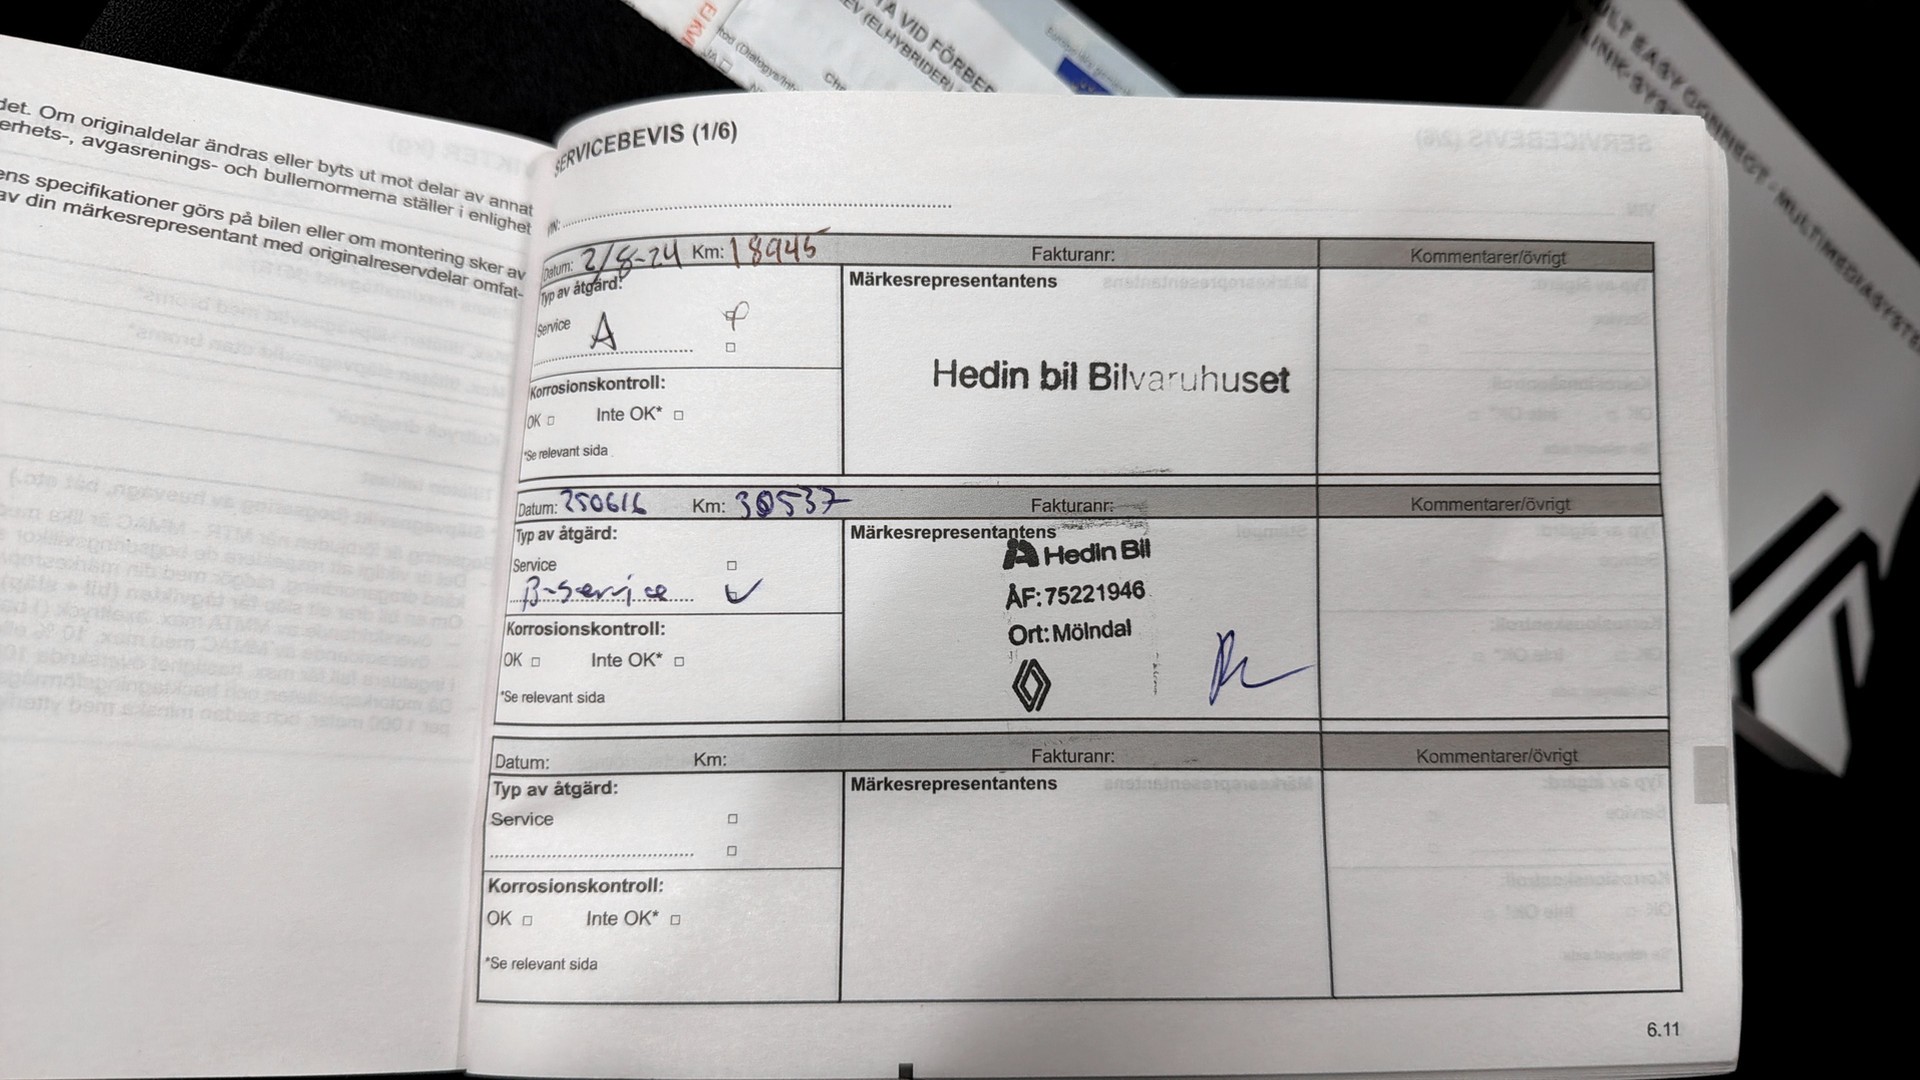 det. Om originaldelar ändras eller byts ut mot delar av annat
erhets-, avgasrenings- och bullernormerna ställer i enlighet
ens specifikationer görs på bilen eller om montering sker av
av din märkesrepresentant med originalreservdelar omfat-
TA VID FÖRBER
EV (ELHYBRIDER)
JA
ULT EASY CONNECT - MULTIMEDIASYSTE
LINK-SYS
SERVICEBEVIS (1/6)
VIN:
Datum: 2/8-24 Km: 18945 Fakturanr: Kommentarer/övrigt
Typ av åtgärd: Märkesrepresentantens
Service A
Hedin bil Bilvaruhuset
Korrosionskontroll:
OK Inte OK*
*Se relevant sida
Datum: 250616 Km: 30537 Fakturanr: Kommentarer/övrigt
Typ av åtgärd: Märkesrepresentantens
Service
B-Service
Hedin Bil
ÅF: 75221946
Ort: Mölndal
Korrosionskontroll:
OK Inte OK*
*Se relevant sida
Datum: Km: Fakturanr: Kommentarer/övrigt
Typ av åtgärd: Märkesrepresentantens
Service
Korrosionskontroll:
OK Inte OK*
*Se relevant sida
6.11